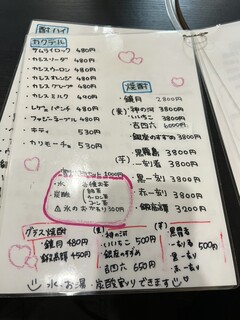 酎ハイ
カクテル
サムライロック 480円
カシスソーダー 480円
カシスウーロン 480円
カシスオレンジ 480円
カシスグレープ 480円
カシスミルク 480円
レゲェパンチ 480円
ファジーネーブル 480円
キティ 530円
カリモーチョ 530円
焼酎
・鏡月 2800円
(麦)・神の河 3800円
・いいちこ 3500円
・吉四六 6000円
・銀座のすずめ 3800円
(芋)・黒霧島 3800円
・一刻者
・黒一刻
・赤一刻
・銀座 3200円
1000円
・氷
・炭酸
・お茶
・ウーロン茶
・コーン茶
△氷のおかわり 300円
グラス焼酎
・鏡月 480円
450円
(麦)・神の河
・いいちこ 500円
・銀座のすずめ
・吉四六 650円
(芋)・黒霧島
・一刻者 500円
・黒一刻
・赤一刻
水・お湯・炭酸割りできます